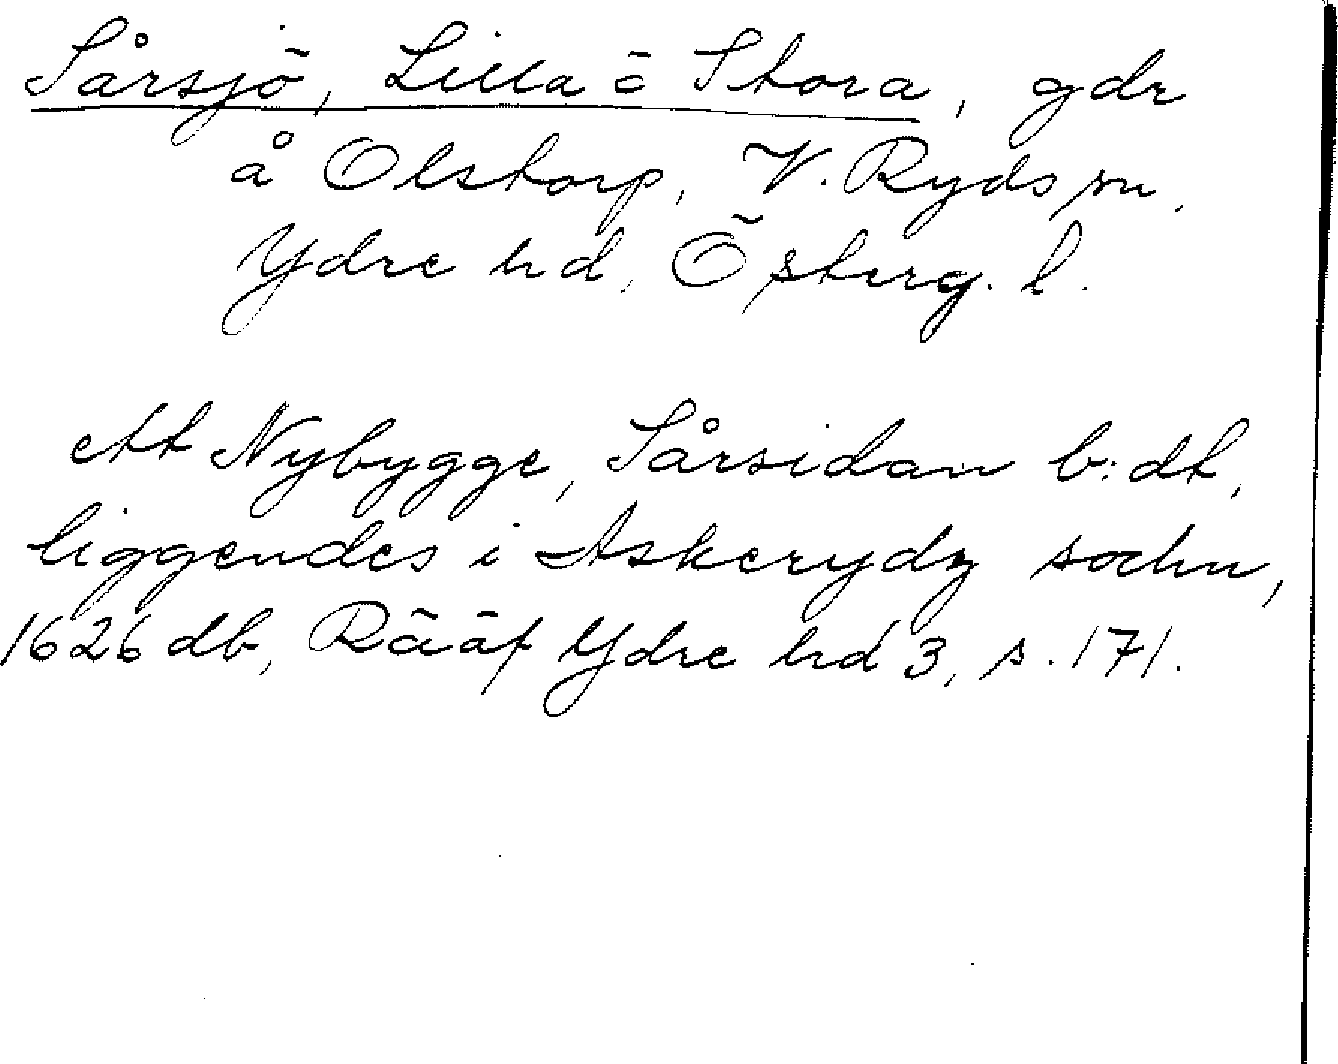 Sårsjö, Lilla o Stora, gdr
å Olstorp, V. Ryds sn,
Ydre hd, Österg. l.
ett Nybygge, Sårsidan b:dt,
liggendes i Askerydz sochn,
1626 db, Rääf Ydre hd 3, s. 171.